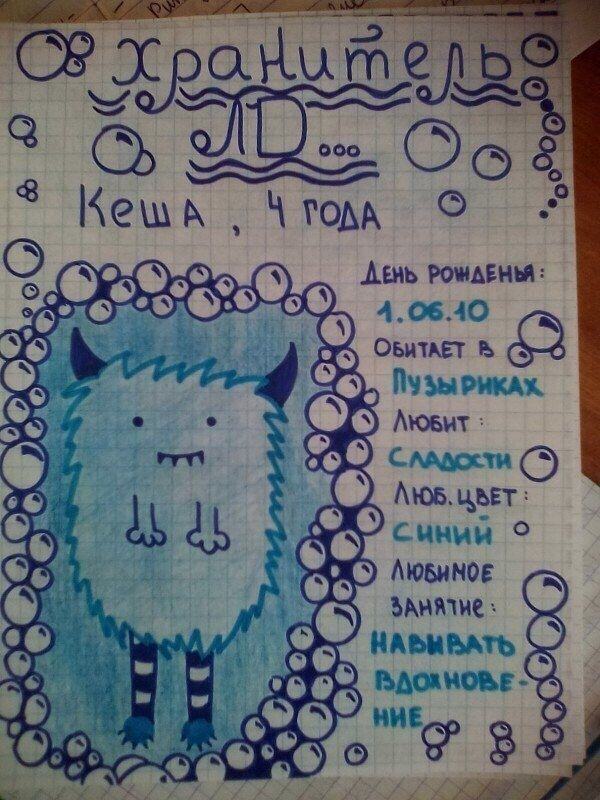 Хранитель
ЛД...
Кеша, 4 года
День рожденья:
1.06.10
Обитает в
Пузыриках
Любит:
Сладости
Люб. цвет:
Синий
Любимое
занятие:
Навивать
вдохнове-
ние